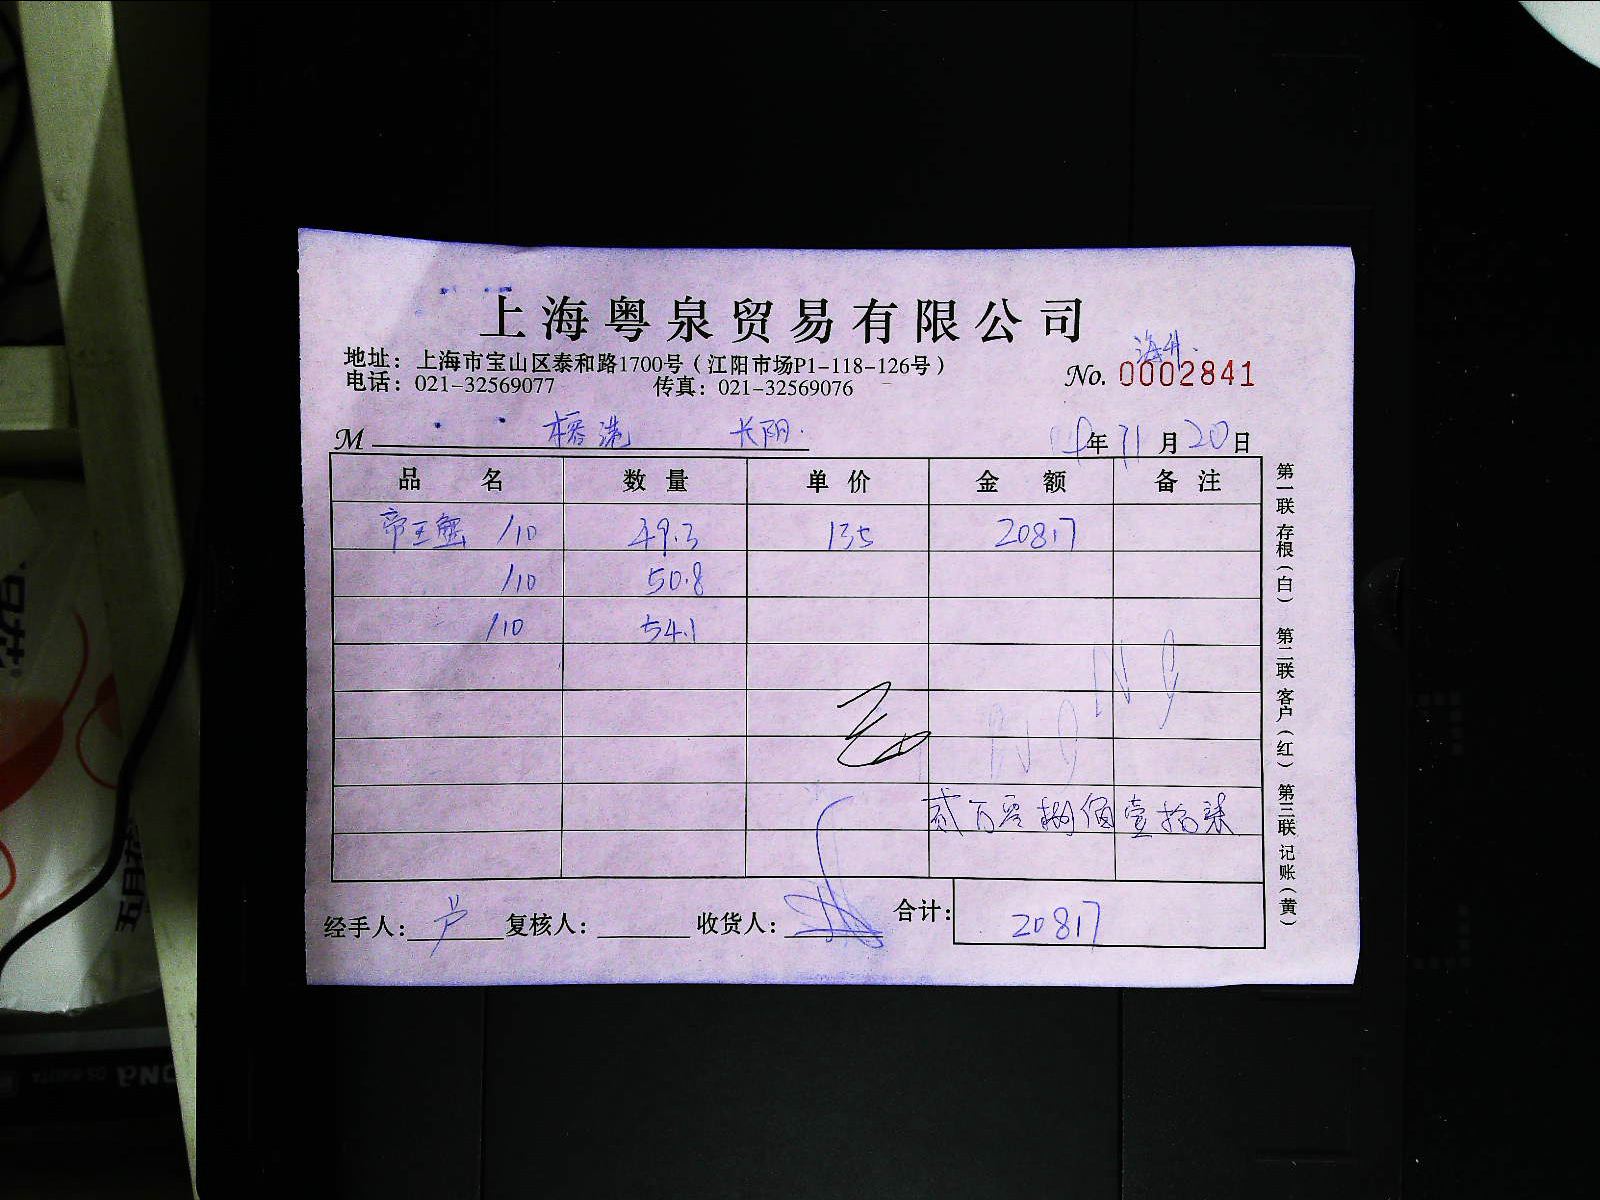 上海粤泉贸易有限公司
海升.
地址：上海市宝山区泰和路1700号（江阳市场P1-118-126号）
No. 0002841
电话：021-32569077 传真：021-32569076
M 长阳. 年 11 月 20 日
品 名 数 量 单 价 金 额 备 注
帝王蟹 /10 49.3 135 20817
/10 50.8
/10 54.1
贰万零捌佰壹拾柒
经手人： 卢 复核人： 收货人： 合计： 20817
第一联 存根（白） 第二联 客户（红） 第三联 记账（黄）